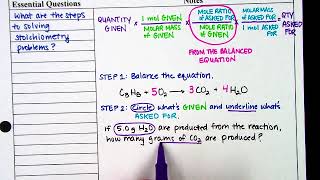 Essential Questions
Notes
What are the steps
to solving
stoichiometry
problems?
QUANTITY GIVEN × 1 mol GIVEN / MOLAR MASS of GIVEN × MOLE RATIO of ASKED FOR / MOLE RATIO of GIVEN × MOLAR MASS of ASKED FOR / 1 mol ASKED FOR = QTY ASKED FOR
FROM THE BALANCED
EQUATION
STEP 1: Balance the equation.
C₃H₈ + 5O₂ → 3CO₂ + 4H₂O
STEP 2: Circle what's GIVEN and underline what's
ASKED FOR.
If 5.0g H₂O are produced from the reaction,
how many grams of CO₂ are produced?